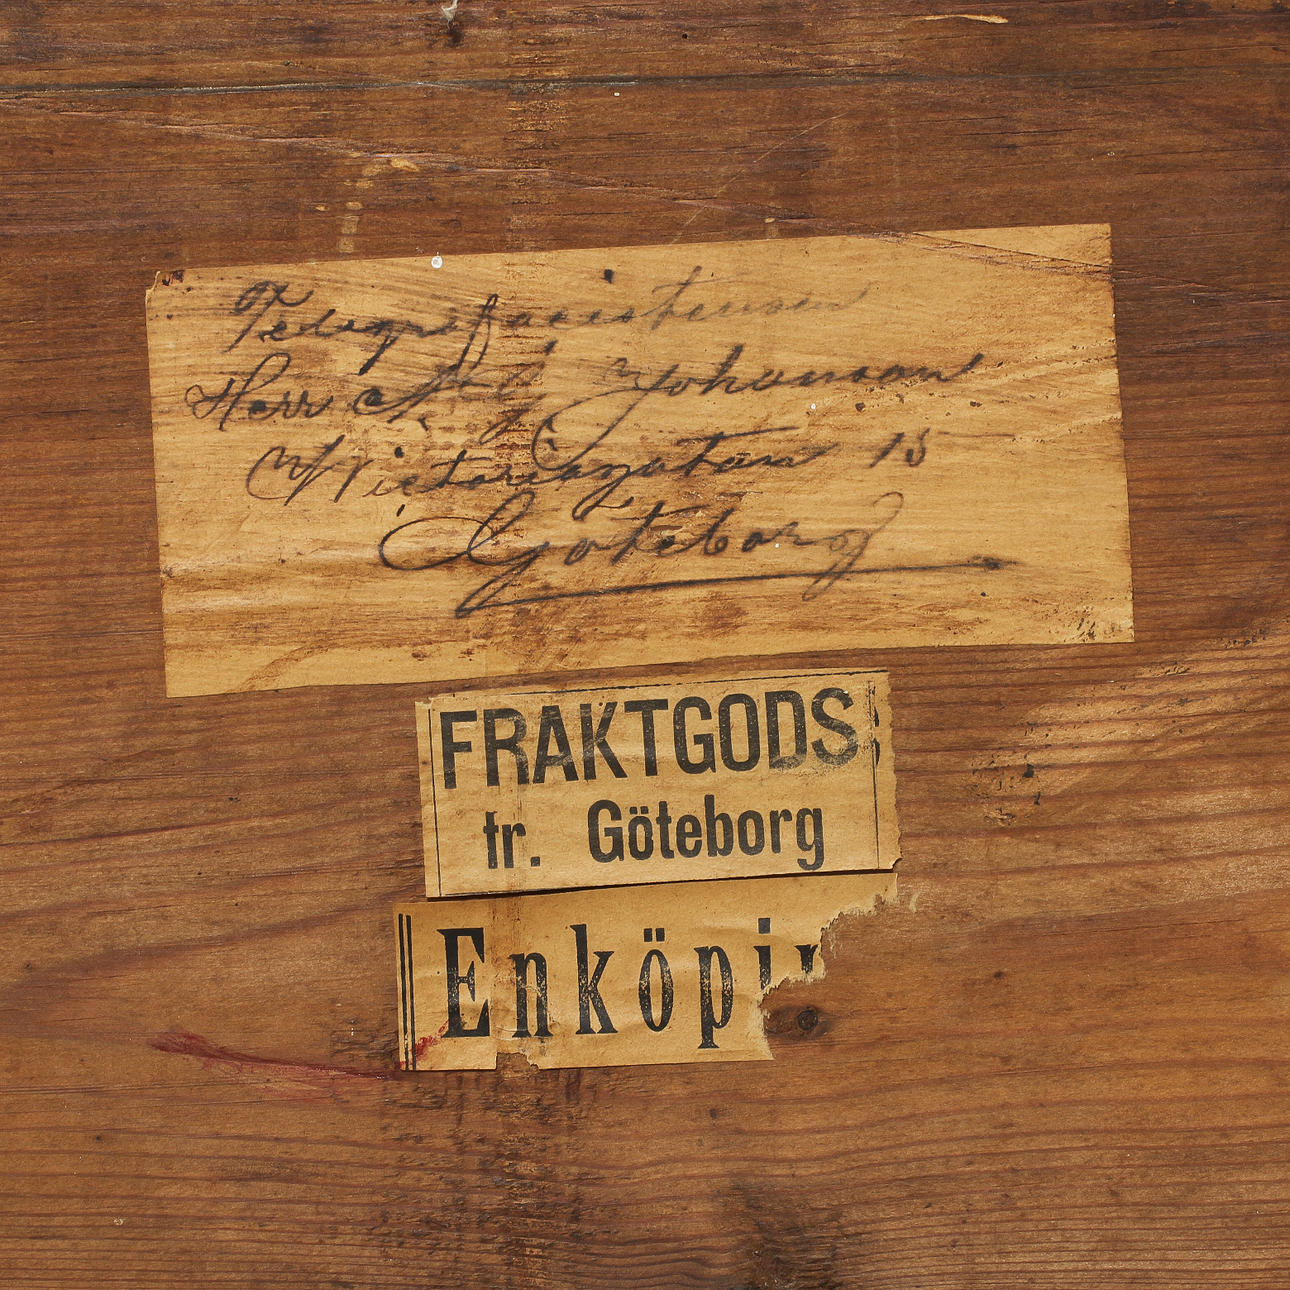 Telegrafassistenten
Herr Johansson
Victoriagatan 15
Göteborg
FRAKTGODS
fr. Göteborg
Enköpin